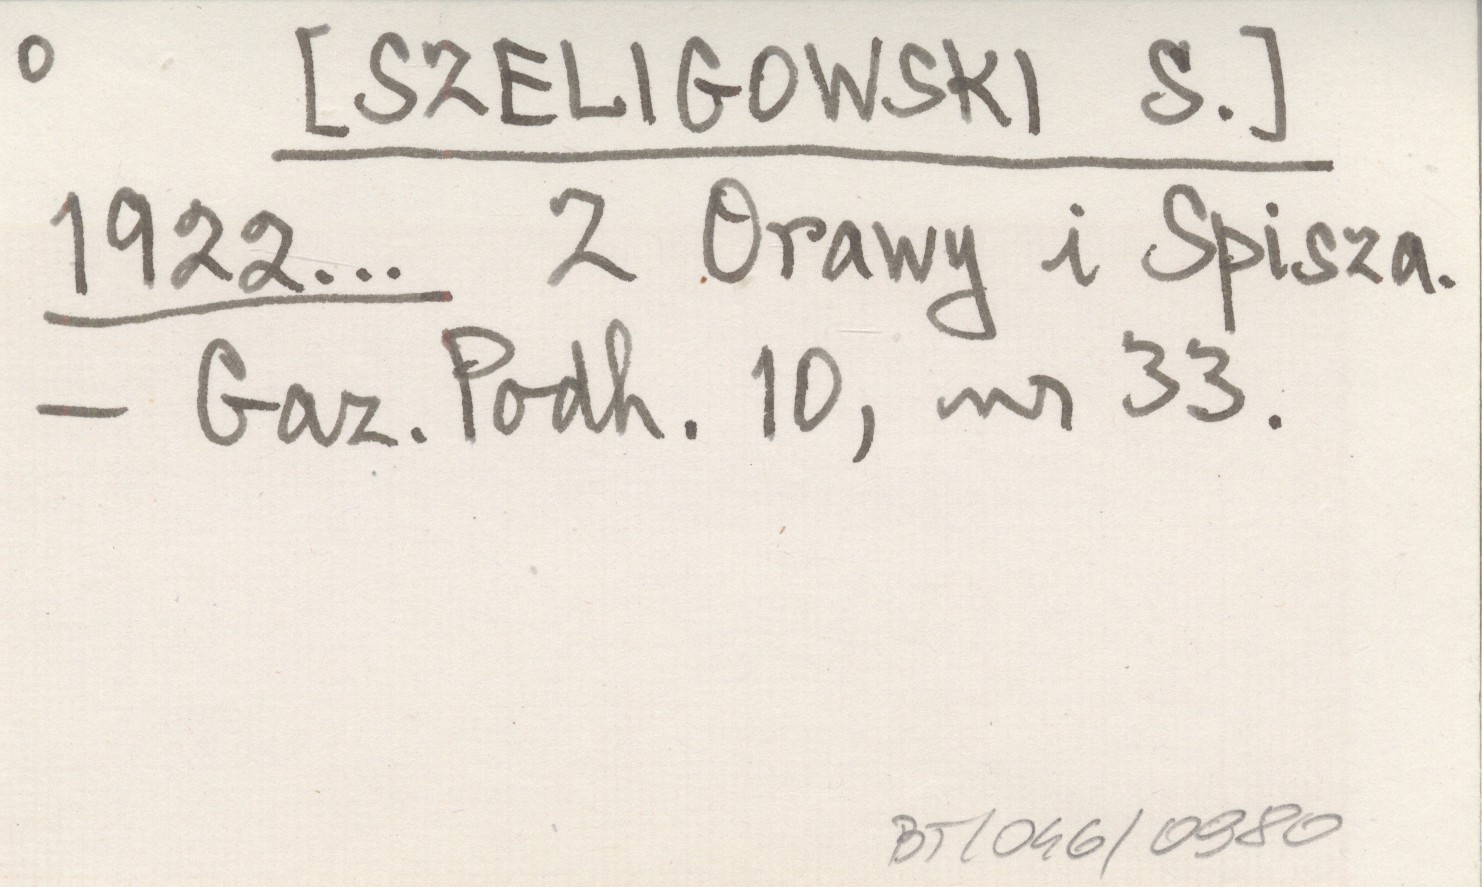 o [SZELIGOWSKI S.]
1922... Z Orawy i Spisza.
— Gaz. Podh. 10, nr 33.
BT/046/0980